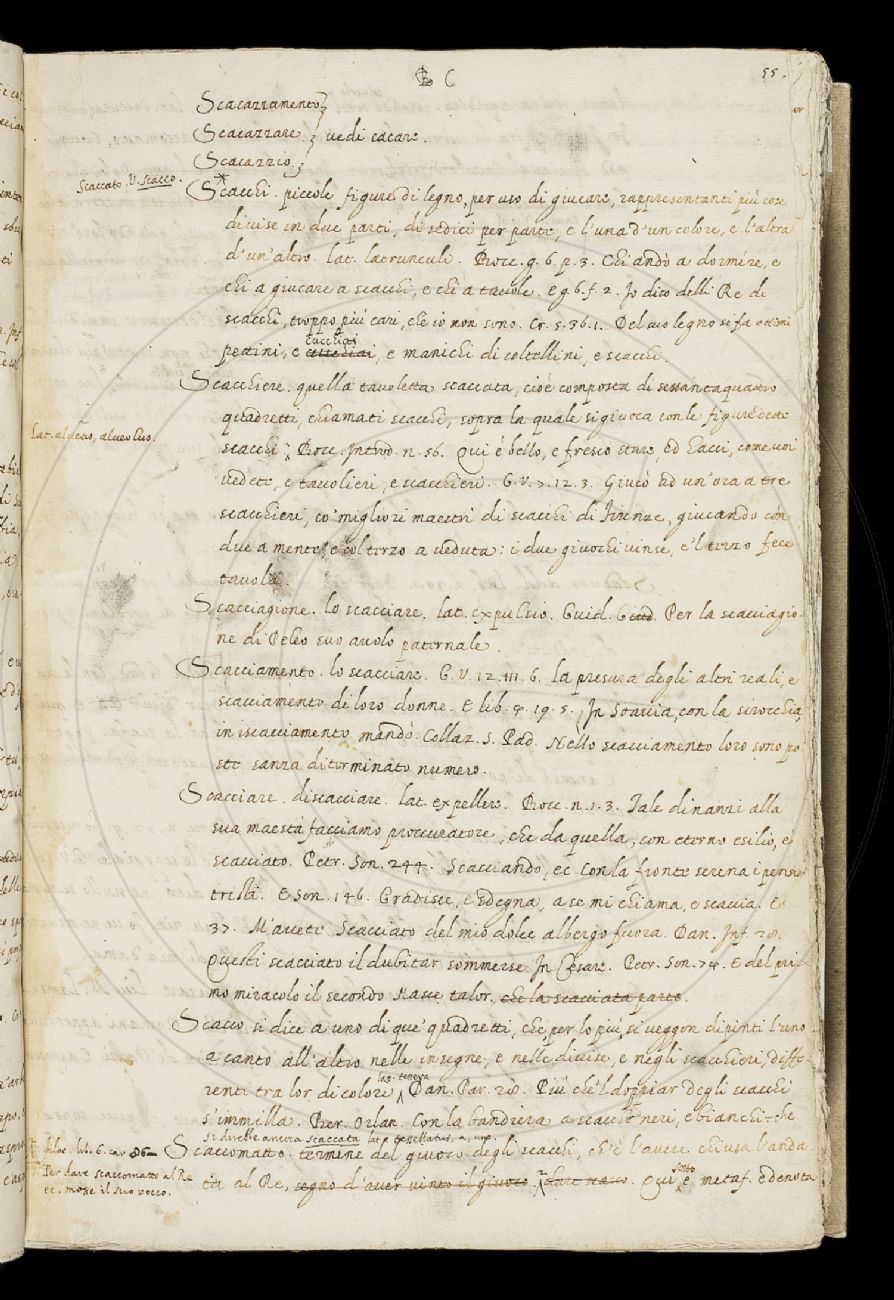 C 55.
Scacazzamento
Scacazzare. vedi cacare.
Scacazzio.
Scaccato. V. Scacco.
Scacchi. piccole figure di legno, per uso di giucare, rappresentanti più cose
divise in due parti, di sedici per parte, e l'una d'un colore, e l'altra
d'un'altro. lat. latrunculi. Bocc. g. 6. p. 3. Chi andò a dormire, e
chi a giucare a scacchi, e chi a tavole. e g. 6. f. 2. Io dico delli Re de
scacchi, troppo più cari, che io non sono. Cr. 5. 36. 1. Del suo legno si fa ottimi
pettini, e cucchiai, e manichi di coltellini, e scacchi.
Scacchiere. quella tavoletta scaccata, cioè composta di sessantaquattro
quadretti, chiamati scacchi, sopra la quale si giuoca con le figure dette
Lat. alveus, alveolus.
scacchi. Bocc. Introd. n. 56. Qui è bello, e fresco stare, ed hacci, come voi
vedete, e tavolieri, e scacchieri. G. V. 7. 12. 3. Giucò ad un'ora a tre
scacchieri, co' migliori maestri di scacchi di Firenze, giucando con
due a mente, e col terzo a veduta: i due giuochi vinse, e'l terzo fece
tavola.
Scacciagione. lo scacciare. lat. expulsio. Guid. Giud. Per la scacciagio-
ne di Peleo suo avolo paternale.
Scacciamento. lo scacciare. G. V. 12. 111. 6. la presura degli altri reali, e
scacciamento di loro donne. E lib. 4. 19. 5. In Soavia, con la sirocchia,
in iscacciamento mandò. Collaz. S. Pad. Nello scacciamento loro sono po-
ste sanza diterminato numero.
Scacciare. discacciare. lat. expellere. Bocc. n. 1. 3. Tale dinanzi alla
sua maestà facciamo proccuratore, che da quella, con eterno esilio, è
scacciato. Petr. Son. 244. Scacciando, ec con la fronte serena i pensier
tristi. E Son. 146. Gradisce, e sdegna, a se mi chiama, e scaccia. E
37. M'avete Scacciato del mio dolce albergo fuora. Dan. Inf. 28.
Questi scacciato il dubitar sommerse In Cesare. Petr. Son. 74. E del pri-
mo miracolo il secondo Nasce talor, che la scacciata parte.
Scacco si dice a uno di que' quadretti, che, per lo più, si veggon dipinti l'uno
a canto all'altro nelle insegne, e nelle divise, e negli scacchieri, diffe-
renti tra lor di colore. lat. tessera Dan. Par. 28. Più che'l doppiar degli scacchi
s'immilla. Ber. Orlan. Con la bandiera a scacchi neri, e bianchi. che
si direbbe ancora scaccata lat. tessellatus, a, um.
Filoc. lib. 6. car 86
Per dare scaccomatto al Re
ec. mosse il suo rocco.
Scaccomatto. termine del giuoco degli scacchi, ch'è l'avere chiusa l'anda-
ta al Re, segno d'aver vinto il giuoco. Qui sotto è metaf. e denota